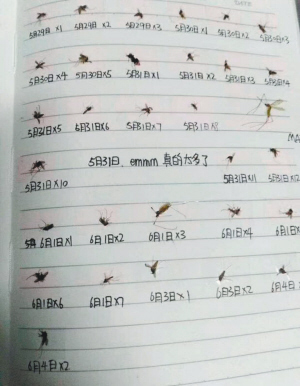 5月29日 x1 5月29日 x2 5月29日 x3 5月30日 x1 5月30日 x2 5月30日 x3
5月30日 x4 5月30日 x5 5月31日 x1 5月31日 x2 5月31日 x3 5月31日 x4
5月31日 x5 5月31日 x6 5月31日 x7 5月31日
5月31日 x10 5月31日, emmm 真的太多了 5月31日 x11 5月31日 x12
6月1日 x1 6月1日 x2 6月1日 x3 6月1日 x4 6月1日
6月1日 x6 6月1日 x7 6月3日 x1 6月3日 x2 6月4日
6月4日 x2